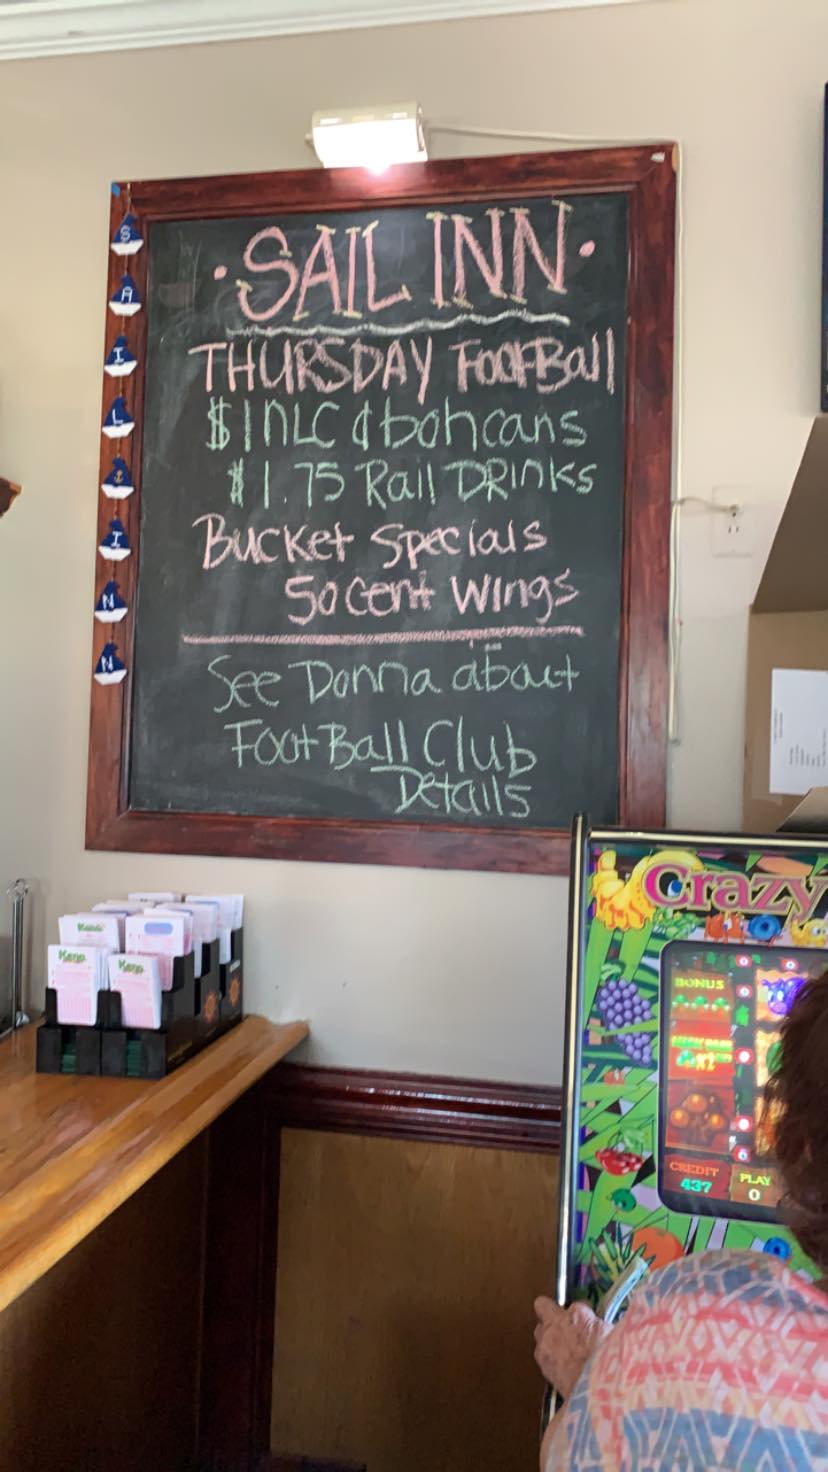 · SAIL INN ·
THURSDAY FOOTBALL
$1 NLC & boh cans
$1.75 Rail DRINKS
Bucket Specials
50 cent Wings
See Donna about
FootBall Club
Details
S
A
I
L
I
N
N
Keno
Keno
Keno
Crazy
BONUS
X2
CREDIT
437
PLAY
0